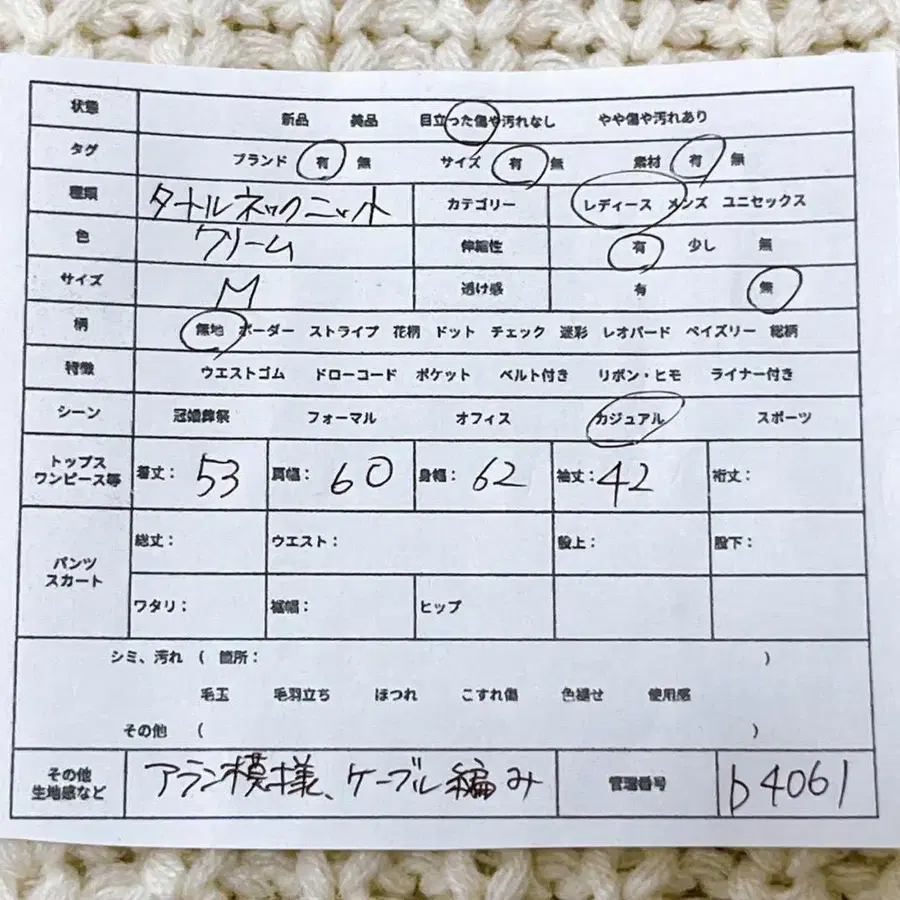 状態 新品 美品 目立った傷や汚れなし やや傷や汚れあり
タグ ブランド 有 無 サイズ 有 無 素材 有 無
種類 タートルネックニット カテゴリー レディース メンズ ユニセックス
色 クリーム 伸縮性 有 少し 無
サイズ M 透け感 有 無
柄 無地 ボーダー ストライプ 花柄 ドット チェック 迷彩 レオパード ペイズリー 総柄
特徴 ウエストゴム ドローコード ポケット ベルト付き リボン・ヒモ ライナー付き
シーン 冠婚葬祭 フォーマル オフィス カジュアル スポーツ
トップス
ワンピース等 着丈: 53 肩幅: 60 身幅: 62 袖丈: 42 裄丈:
パンツ
スカート 総丈: ウエスト: 股上: 股下:
ワタリ: 裾幅: ヒップ
シミ、汚れ ( 箇所: )
毛玉 毛羽立ち ほつれ こすれ傷 色褪せ 使用感
その他 ( )
その他
生地感など アラン模様、ケーブル編み 管理番号 b4061